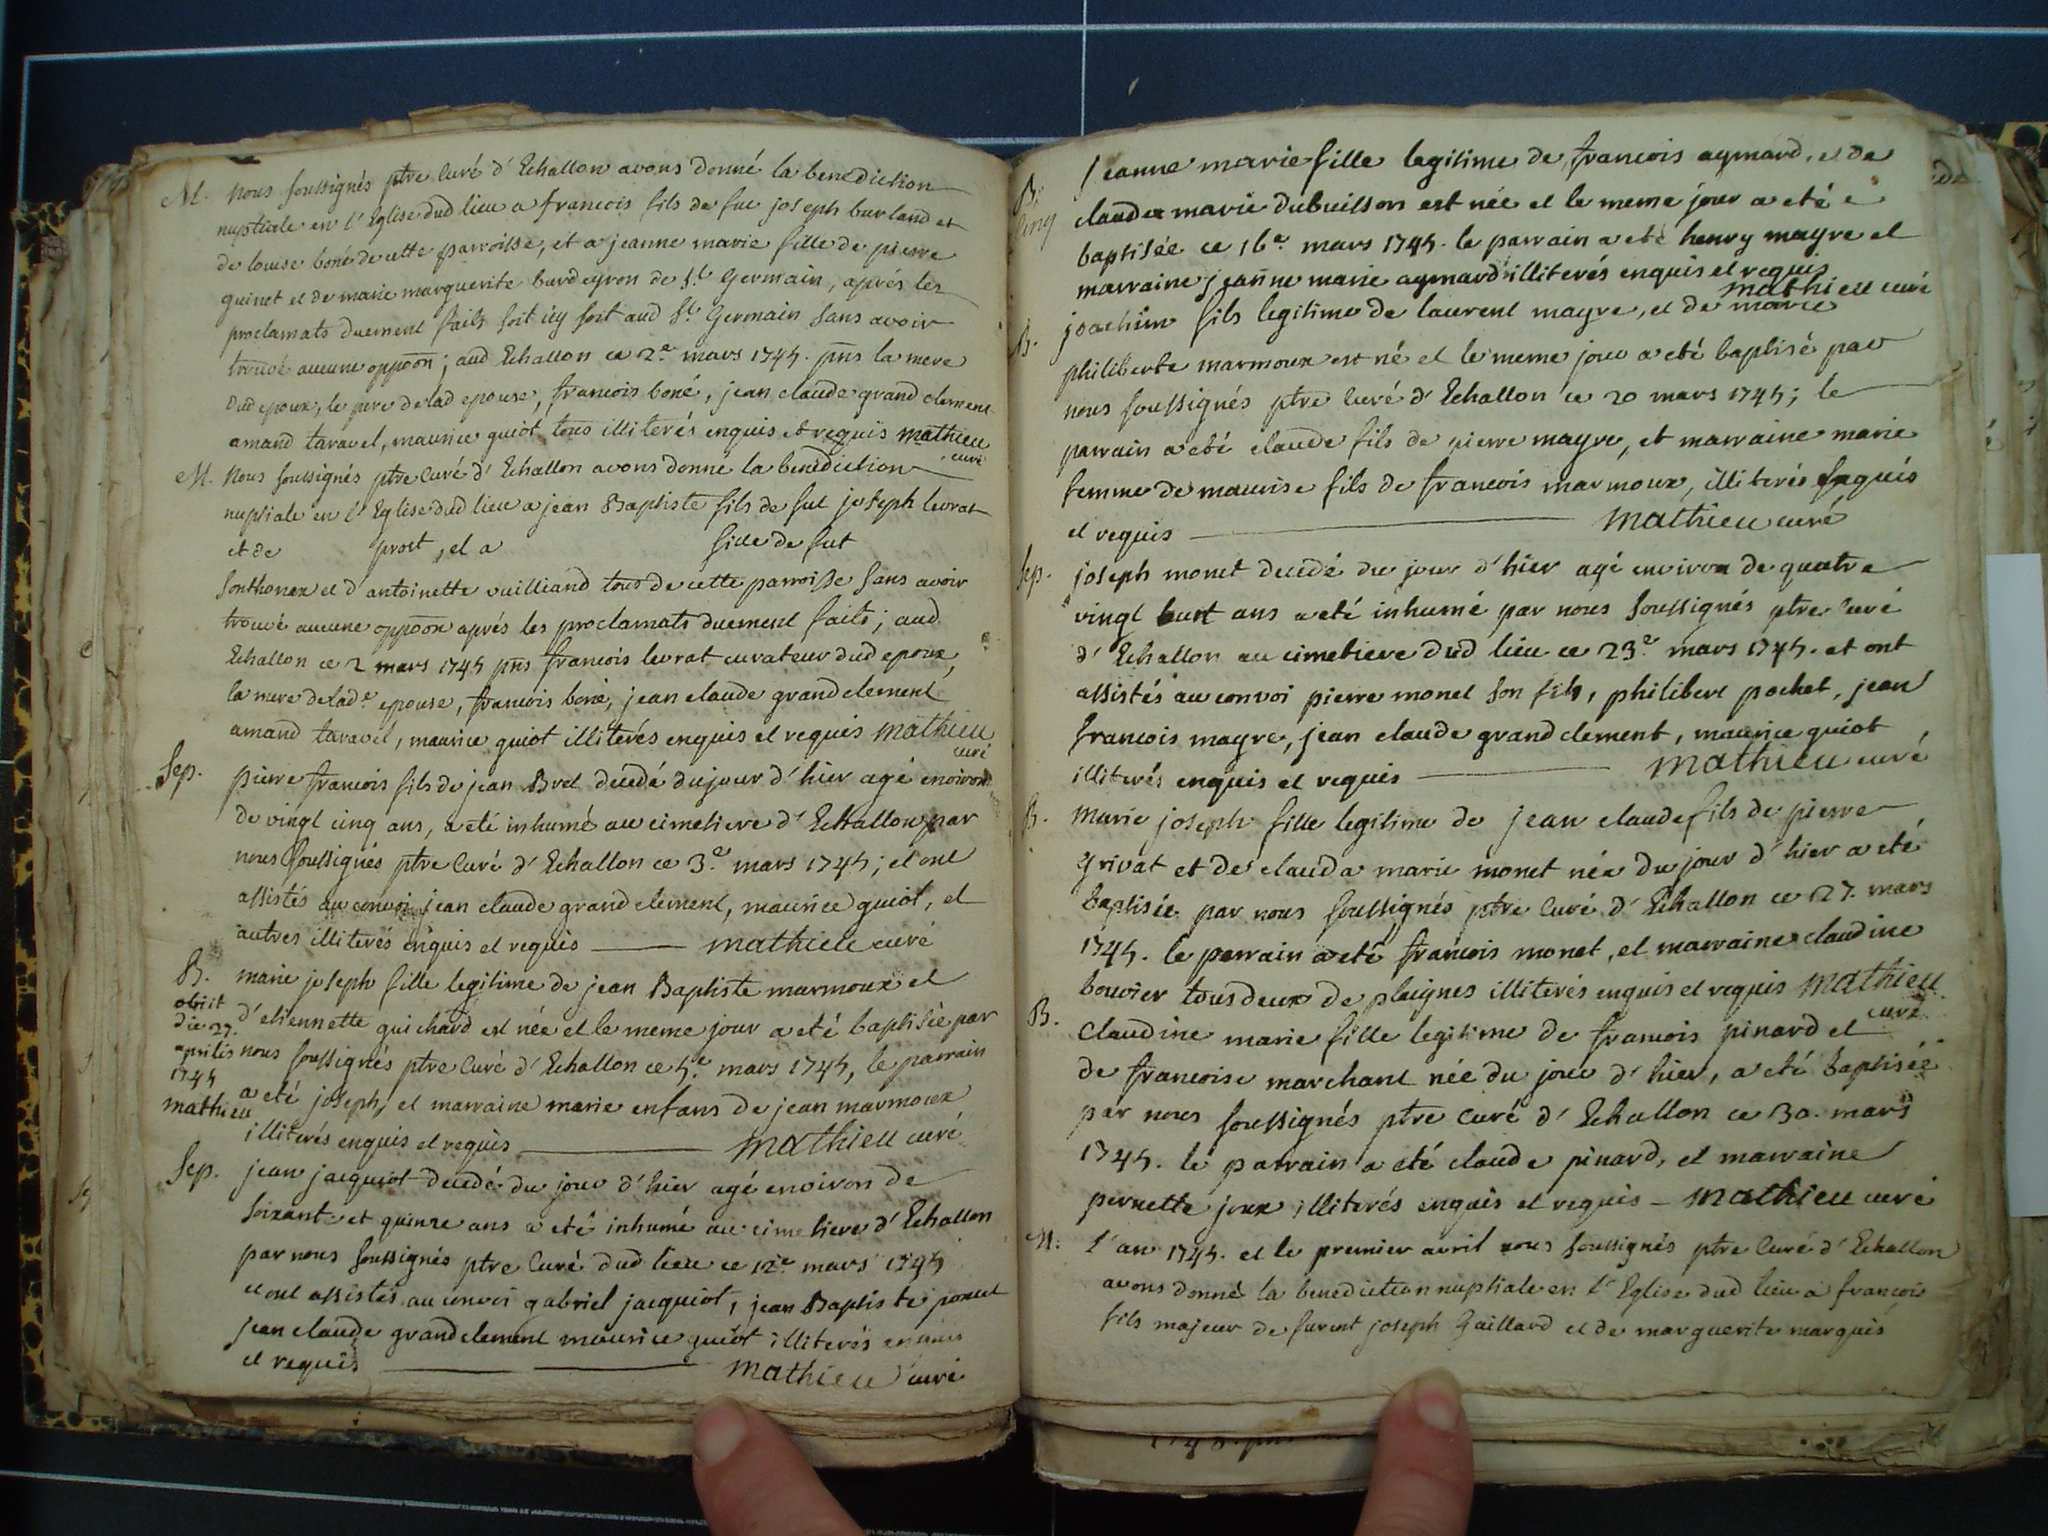 M. nous soussignés ptre Curé d'Echallon avons donné la benediction
nuptiale en l'Eglise dud lieu a francois fils de fue joseph burland et
de louise boné de cette parroisse, et a jeanne marie fille de pierre
guinet et de marie marguerite burdeyron de St Germain, aprés les
proclamats duement faits soit icy soit aud St Germain sans avoir
trouvé aucune oppoon; aud Echallon ce 2e mars 1745. pns la mere
dud epoux, le pere de lad epouse, francois boné, jean claude grand clement
amand taravel, maurice guiot tous illiterés enquis et requis mathieu
curé
M. Nous soussignés ptre Curé d'Echallon avons donné la benediction
nuptiale en l'Eglise dud lieu a jean Baptiste fils de fut joseph levrat
et de prost, et a fille de fut
sonthonax et d'antoinette vuilliand tous de cette parroisse sans avoir
trouvé aucune oppoon aprés les proclamats duement faits; aud
Echallon ce 2 mars 1745 pns francois levrat curateur dud epoux,
la mere de lade epouse, francois boné, jean claude grand clement
amand taravel, maurice guiot illiterés enquis et requis mathieu
curé
Sep. pierre francois fils de jean Bret decedé du jour d'hier agé environ
de vingt cinq ans, a eté inhumé au cimetiere d'Echallon par
nous soussignés ptre Curé d'Echallon ce 3e mars 1745; et ont
assistés au convoi jean claude grand clement, maurice guiot, et
autres illiterés enquis et requis mathieu curé
B. marie joseph fille legitime de jean Baptiste marmoux et
obiit
die 29
aprilis
1745
mathieu
d'etiennette guichard est née et le meme jour a eté baptisée par
nous soussignés ptre Curé d'Echallon ce 5e mars 1745, le parrain
a eté joseph, et marraine marie enfans de jean marmoux
illiterés enquis et requis mathieu curé
Sep. jean jacquiot decedé du jour d'hier agé environ de
soixante et quinze ans a eté inhumé au cimetiere d'Echallon
par nous soussignés ptre Curé dud lieu ce 12e mars 1745
et ont assistés au convoi gabriel jacquiot, jean Baptiste poncet
jean claude grand clement maurice guiot illiterés enquis
et requis mathieu curé
B. jeanne marie fille legitime de francois aymard, et de
claudea marie dubuisson est née et le meme jour a eté
baptisée ce 16e mars 1745. le parrain a eté henry mayre et
marraine jeanne marie aymard illiterés enquis et requis
mathieu curé
B. joachim fils legitime de laurent mayre, et de marie
philiberte marmoux est né et le meme jour a eté baptisé par
nous soussignés ptre Curé d'Echallon ce 20 mars 1745; le
parrain a eté claude fils de pierre mayre, et marraine marie
femme de maurise fils de francois marmoux, illiterés enquis
et requis mathieu curé
Sep. joseph monet decedé du jour d'hier agé environ de quatre
vingt huit ans a eté inhumé par nous soussignés ptre Curé
d'Echallon au cimetiere dud lieu ce 23e mars 1745. et ont
assistés au convoi pierre monet son fils, philibert pochet, jean
francois mayre, jean claude grand clement, maurice guiot
illiterés enquis et requis mathieu curé
B. Marie joseph fille legitime de jean claude fils de pierre
grivat et de clauda marie monet née du jour d'hier a eté
baptisée par nous soussignés ptre Curé d'Echallon ce 27. mars
1745. le parrain a eté francois monet, et marraine claudine
bouvier tous deux de plaignes illiterés enquis et requis mathieu
curé
B. Claudine marie fille legitime de francois pinard et
de francoise marchant née du jour d'hier, a eté baptisée
par nous soussignés ptre Curé d'Echallon ce 30. mars
1745. le parrain a eté claude pinard, et marraine
pernette joux illiterés enquis et requis – mathieu curé
M. l'an 1745. et le premier avril nous soussignés ptre Curé d'Echallon
avons donné la benediction nuptiale en l'Eglise dud lieu a francois
fils majeur de furent joseph Gaillard et de marguerite marquis